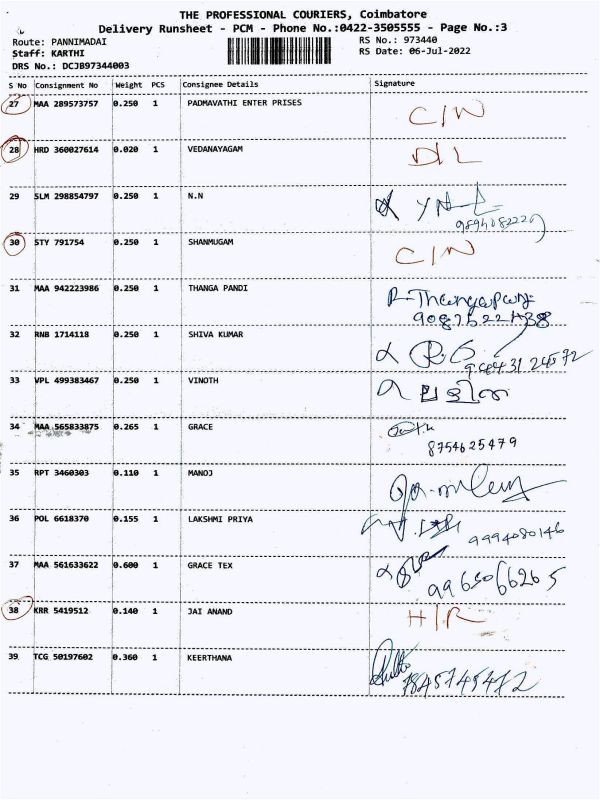 THE PROFESSIONAL COURIERS, Coimbatore
Delivery Runsheet - PCM - Phone No.:0422-3505555 - Page No.:3
Route: PANNIMADAI RS No.: 973440
Staff: KARTHI RS Date: 06-Jul-2022
DRS No.: DCJB97344003
S No Consignment No Weight PCS Consignee Details Signature
27 MAA 289573757 0.250 1 PADMAVATHI ENTER PRISES C/N
28 HRD 360027614 0.020 1 VEDANAYAGAM D/L
29 SLM 298854797 0.250 1 N.N
30 STY 791754 0.250 1 SHANMUGAM C/N
31 MAA 942223986 0.250 1 THANGA PANDI
32 RNB 1714118 0.250 1 SHIVA KUMAR
94443124572
33 VPL 499383467 0.250 1 VINOTH
34 MAA 565833875 0.265 1 GRACE
8754625479
35 RPT 3460303 0.110 1 MANOJ
36 POL 6618370 0.155 1 LAKSHMI PRIYA
9994080146
37 MAA 561633622 0.600 1 GRACE TEX
38 KRR 5419512 0.140 1 JAI ANAND H/R
39 TCG 50197602 0.360 1 KEERTHANA
7845745472